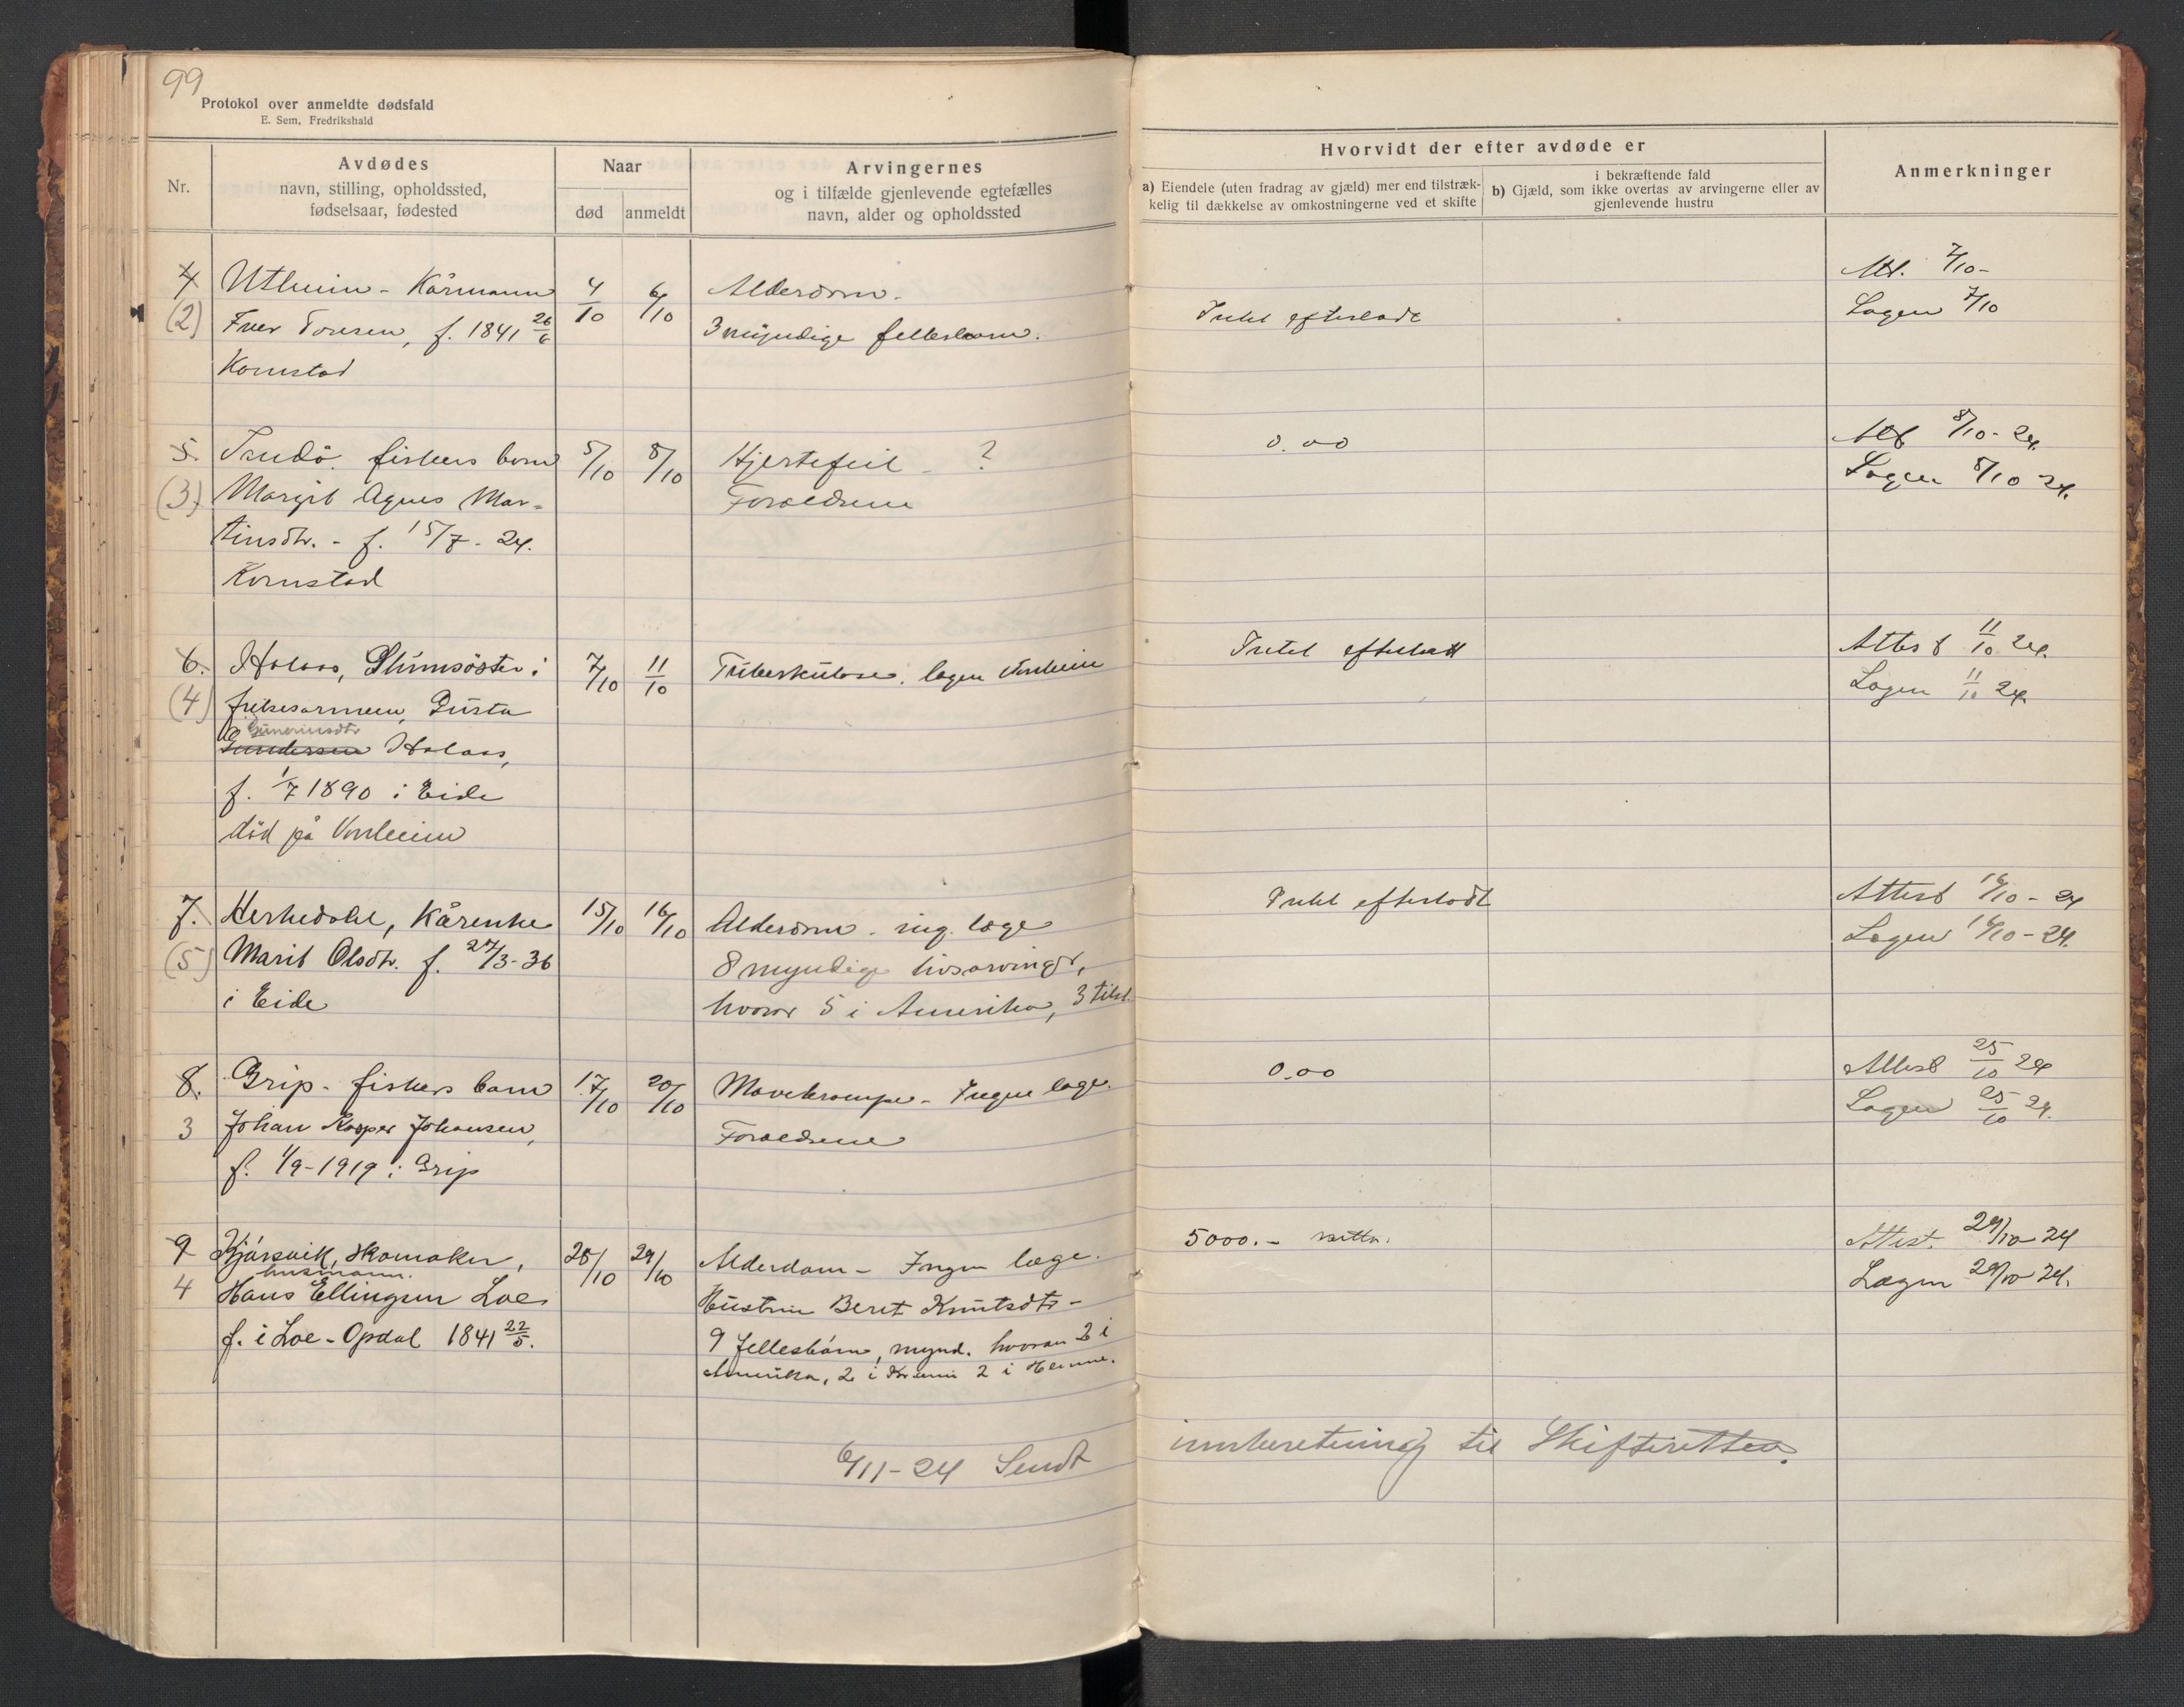 99
Protokol over anmeldte dødsfald
E. Sem, Fredrikshald
Nr.
Avdødes
navn, stilling, opholdssted,
fødselsaar, fødested
Naar
død
anmeldt
Arvingernes
og i tilfælde gjenlevende egtefælles
navn, alder og opholdssted
Hvorvidt der efter avdøde er
a) Eiendele (uten fradrag av gjæld) mer end tilstræk-
kelig til dækkelse av omkostningerne ved et skifte
i bekræftende fald
b) Gjæld, som ikke overtas av arvingerne eller av
gjenlevende hustru
Anmerkninger
4 Utheim - Kårmann 4/10 6/10 Alderdom. Att. 7/10 -
(2) Iver Toresen, f. 1841 26/6 3 myndige fellesbarn. Intet efterladt Lagen 7/10
Kornstad
5. Sandö. fiskers barn 5/10 8/10 Hjertefeil - ? 0.00 Att 8/10 - 24.
(3) Margit Agnes Mar- Foraldrene Lagen 8/10 24.
tinsdtr. - f. 15/7 - 24.
Kornstad
6. Holaas, Slumsöster i 7/10 11/10 Tuberkulose. lagen Vonheim Intet efterlatt Attest 11/10 24.
(4) frelsesarmeen, Gusta Lagen 11/10 24.
Guneriusdtr
Gundersen Holaas,
f. 1/7 1890 i Eide
död på Vonheim
7. Herskedahl, Kårenke 15/10 16/10 Alderdom - ing. læge Intet efterladt Attest 16/10 - 24
(5) Marit Olsdtr. f. 27/3-36 8 myndige livsarvinger, Lagen 16/10 - 24.
i Eide hvorav 5 i Amerika, 3 tilst.
8. Grip - fiskers barn 17/10 20/10 Mavekrampe - Ingen lage. 0.00 Attest 25/10 24
3 Johan Kasper Johansen, Foraldrene Lagen 25/10 24.
f. 1/9-1919 i Grip
9 Kjårsvik, skomaker, 28/10 29/10 Alderdom - Ingen læge. 5000.- netto. Attest. 29/10 24
husmann.
4 Hans Ellingsen Loe Hustru Beret Knutsdtr - Lægen 29/10 24.
f. i Loe - Opdal 1841 22/5. 9 fellesbørn, mynd. hvorav 2 i
Amerika, 2 i 2 i Hemne.
6/11-24 Sendt innberetning til Skifteretten.